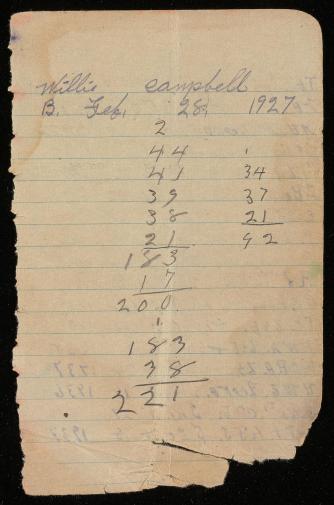 Willie Campbell
B. Feb. 28, 1927
2
44
41 34
39 37
38 21
21 92
183
17
200
1
183
38
221